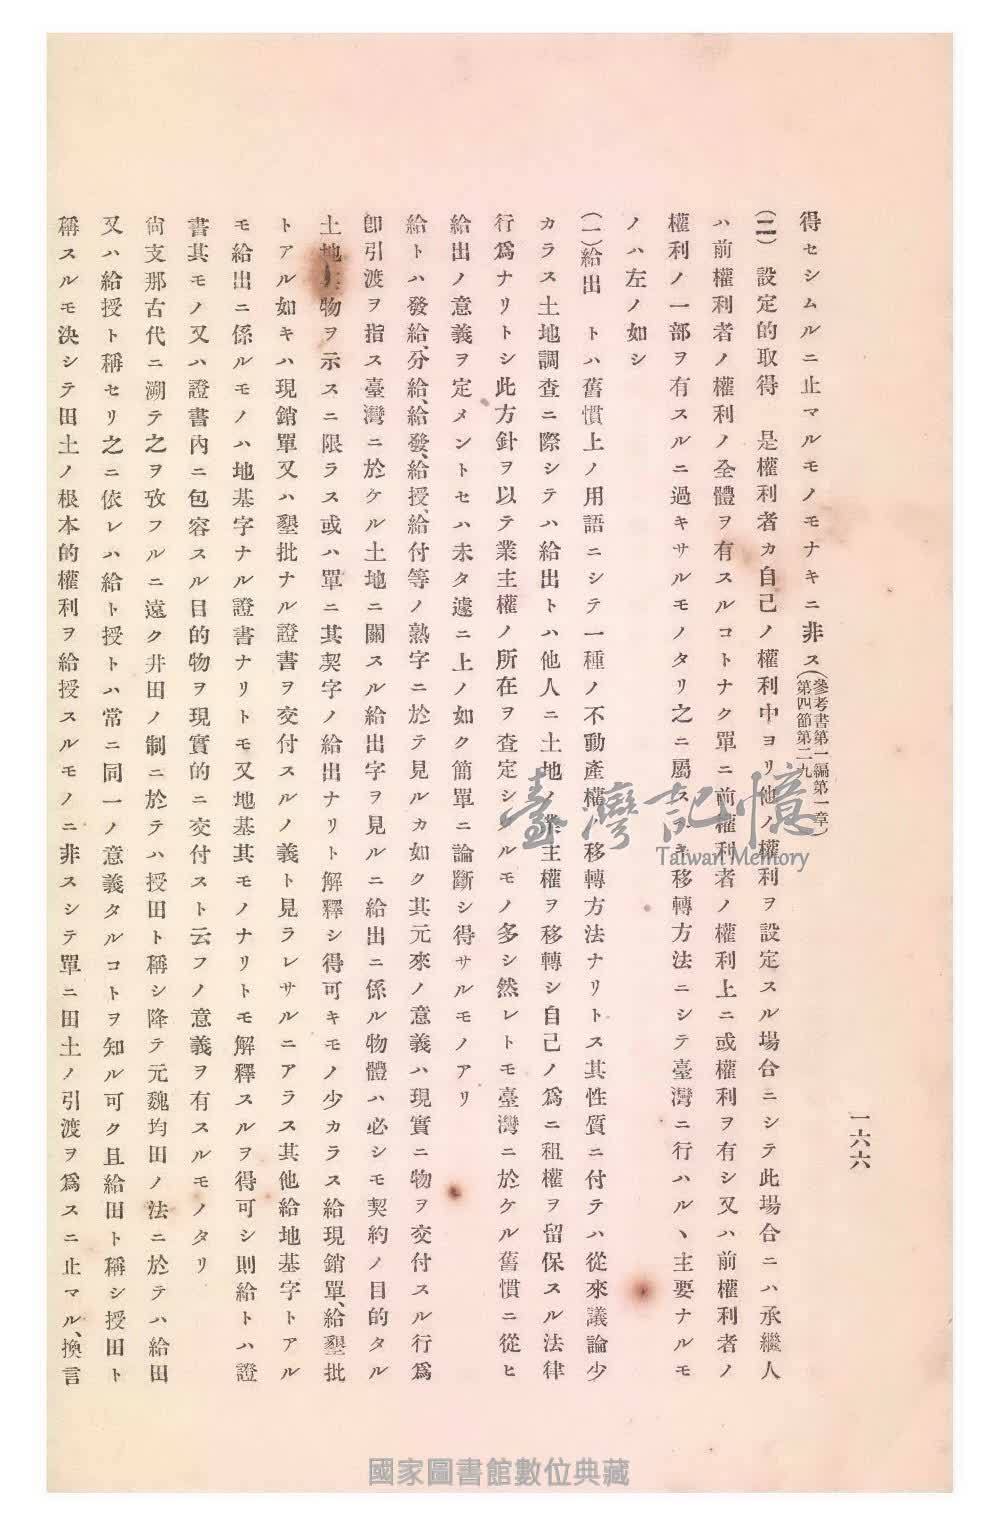 得セシムルニ止マルモノモナキニ非ス(參考書第一編第一章第四節第二九)
(二) 設定的取得 是權利者カ自己ノ權利中ヨリ他ノ權利ヲ設定スル場合ニシテ此場合ニハ承繼人
ハ前權利者ノ權利ノ全體ヲ有スルコトナク單ニ前權利者ノ權利上ニ或權利ヲ有シ又ハ前權利者ノ
權利ノ一部ヲ有スルニ過キサルモノタリ之ニ屬スヘキ移轉方法ニシテ臺灣ニ行ハルヽ主要ナルモ
ノハ左ノ如シ
(一)給出 トハ舊慣上ノ用語ニシテ一種ノ不動產權ノ移轉方法ナリトス其性質ニ付テハ從來議論少
カラス土地調查ニ際シテハ給出トハ他人ニ土地ノ業主權ヲ移轉シ自己ノ爲ニ租權ヲ留保スル法律
行爲ナリトシ此方針ヲ以テ業主權ノ所在ヲ查定シタルモノ多シ然レトモ臺灣ニ於ケル舊慣ニ從ヒ
給出ノ意義ヲ定メントセハ未タ遽ニ上ノ如ク簡單ニ論斷シ得サルモノアリ
給トハ發給、分給、給發、給授、給付等ノ熟字ニ於テ見ルカ如ク其元來ノ意義ハ現實ニ物ヲ交付スル行爲
卽引渡ヲ指ス臺灣ニ於ケル土地ニ關スル給出字ヲ見ルニ給出ニ係ル物體ハ必シモ契約ノ目的タル
土地物ヲ示スニ限ラス或ハ單ニ其契字ノ給出ナリト解釋シ得可キモノ少カラス給現銷單、給墾批
トアル如キハ現銷單又ハ墾批ナル證書ヲ交付スルノ義ト見ラレサルニアラス其他給地基字トアル
モ給出ニ係ルモノハ地基字ナル證書ナリトモ又地基其モノナリトモ解釋スルヲ得可シ則給トハ證
書其モノ又ハ證書內ニ包容スル目的物ヲ現實的ニ交付スト云フノ意義ヲ有スルモノタリ
尙支那古代ニ溯テ之ヲ攷フルニ遠ク井田ノ制ニ於テハ授田ト稱シ降テ元魏均田ノ法ニ於テハ給田
又ハ給授ト稱セリ之ニ依レハ給ト授トハ常ニ同一ノ意義タルコトヲ知ル可ク且給田ト稱シ授田ト
稱スルモ決シテ田土ノ根本的權利ヲ給授スルモノニ非スシテ單ニ田土ノ引渡ヲ爲スニ止マル、換言
一六六
臺灣記憶
Taiwan Memory
國家圖書館數位典藏